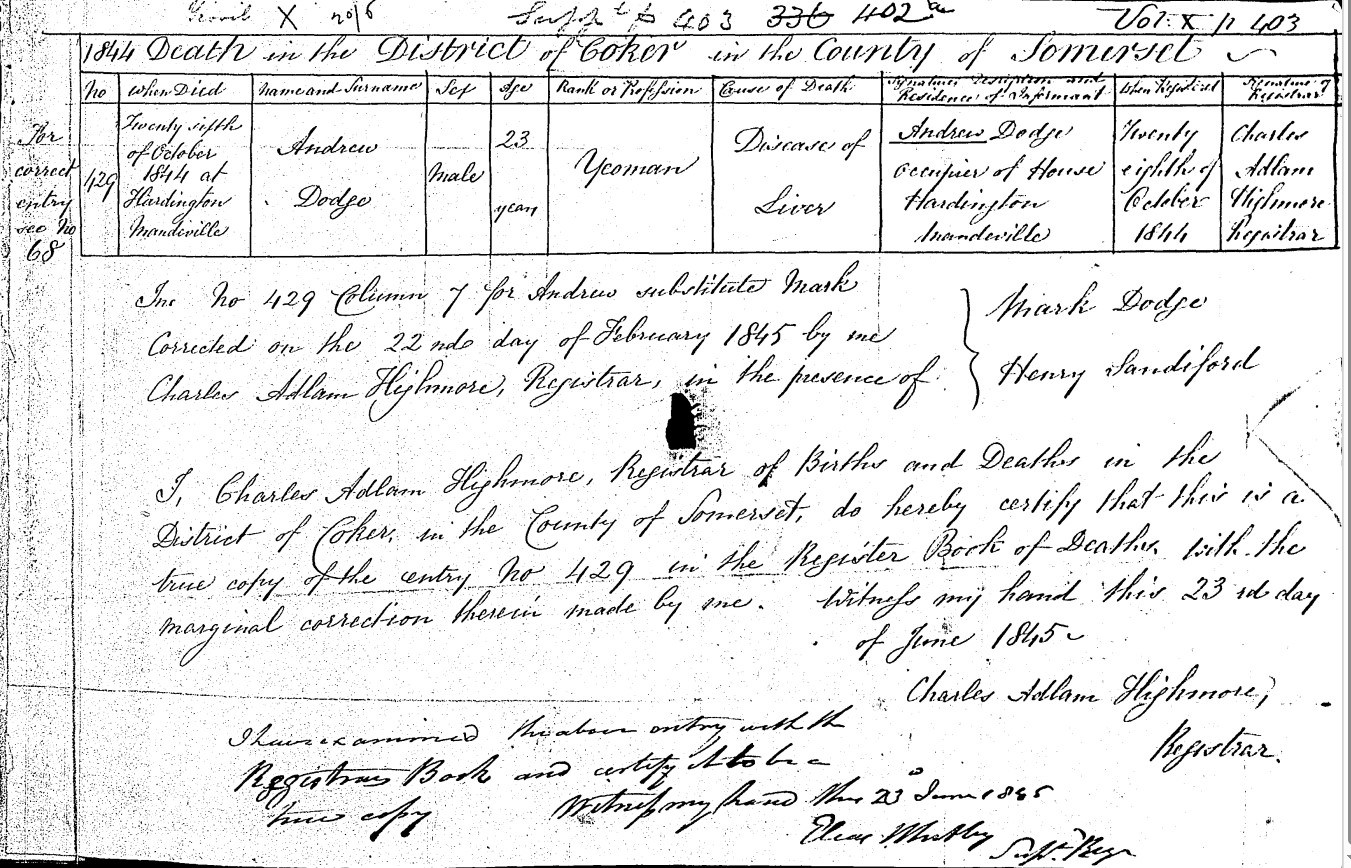 Yeovil X 2016 Suppt p 403 336 402a Vol: X p 403
1844 Death in the District of Coker in the County of Somerset
No When Died Name and Surname Sex Age Rank or Profession Cause of Death Signature Description and Residence of Informant When Registered Signature of Registrar
For correct entry see No 68
429
Twenty fifth
of October
1844 at
Hardington
Mandeville
Andrew
Dodge
Male
23
years
Yeoman
Disease of
Liver
Andrew Dodge
Occupier of House
Hardington
Mandeville
Twenty
eighth of
October
1844
Charles
Adlam
Highmore
Registrar
In No 429 Column 7 for Andrew substitute Mark
Corrected on the 22nd day of February 1845 by me
Charles Adlam Highmore, Registrar, in the presence of
Mark Dodge
Henry Sandiford
I, Charles Adlam Highmore, Registrar of Births and Deaths in the
District of Coker, in the County of Somerset, do hereby certify that this is a
true copy of the entry No 429 in the Register Book of Deaths with the
marginal correction therein made by me. Witness my hand this 23rd day
of June 1845
Charles Adlam Highmore,
Registrar.
I have examined the above entry with the
Registrars Book and certify it to be a
true copy Witness my hand this 23d June 1845
Supt. Regr